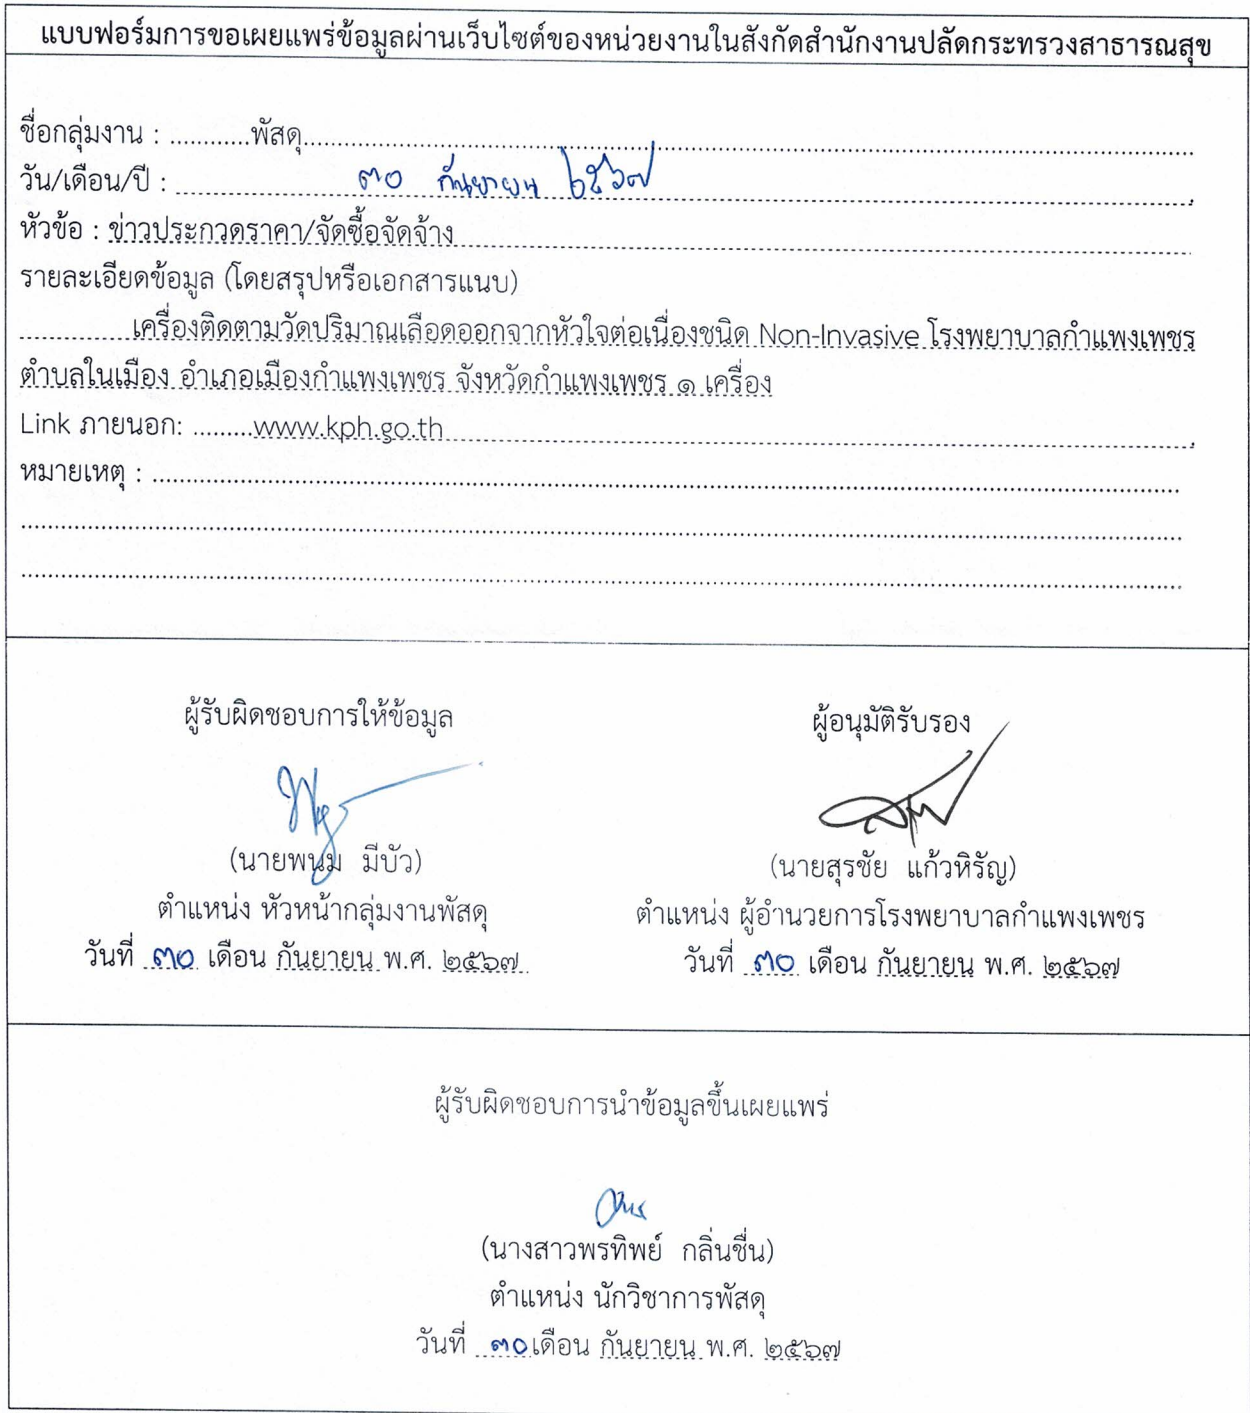 แบบฟอร์มการขอเผยแพร่ข้อมูลผ่านเว็บไซต์ของหน่วยงานในสังกัดสำนักงานปลัดกระทรวงสาธารณสุข
ชื่อกลุ่มงาน : ............พัสดุ............
วัน/เดือน/ปี : ๓๐ กันยายน ๒๕๖๗
หัวข้อ : ข่าวประกวดราคา/จัดซื้อจัดจ้าง
รายละเอียดข้อมูล (โดยสรุปหรือเอกสารแนบ)
เครื่องติดตามวัดปริมาณเลือดออกจากหัวใจต่อเนื่องชนิด Non-Invasive โรงพยาบาลกำแพงเพชร
ตำบลในเมือง อำเภอเมืองกำแพงเพชร จังหวัดกำแพงเพชร ๑ เครื่อง
Link ภายนอก: .........www.kph.go.th
หมายเหตุ :
ผู้รับผิดชอบการให้ข้อมูล
(นายพนม มีบัว)
ตำแหน่ง หัวหน้ากลุ่มงานพัสดุ
วันที่ ๓๐ เดือน กันยายน พ.ศ. ๒๕๖๗
ผู้อนุมัติรับรอง
(นายสุรชัย แก้วหิรัญ)
ตำแหน่ง ผู้อำนวยการโรงพยาบาลกำแพงเพชร
วันที่ ๓๐ เดือน กันยายน พ.ศ. ๒๕๖๗
ผู้รับผิดชอบการนำข้อมูลขึ้นเผยแพร่
(นางสาวพรทิพย์ กลิ่นชื่น)
ตำแหน่ง นักวิชาการพัสดุ
วันที่ ๓๐ เดือน กันยายน พ.ศ. ๒๕๖๗